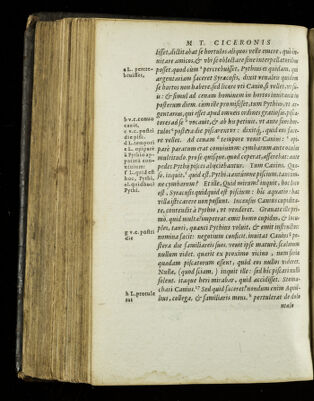 M. T. CICERONIS
lisset, dictitabat se hortulos aliquos velle emere, quò in-
uitare amicos, & vbi se oblectare sine interpellatoribus
posset. quod cùm percrebuisset, Pythius ei quidam, qui
argentariam faceret Syracusis, dixit venales quidem
se hortos non habere, sed licere vti Canio, si vellet, vt su-
is: & simul ad cenam hominem in hortos inuitauit in
posterum diem. cùm ille promisisset, tum Pythius, vt ar-
gentarius, qui esset apud omneis ordines gratiosus, pisca-
tores ad se vocauit, & ab his petiuit, vt ante suos hor-
tulos postera die piscarentur: dixitq. quid eos face-
re vellet. Ad cenam tempore venit Canius: op-
pare paratum erat conuiuium: cymbarum ante oculos
multitudo. pro se quisque, quod ceperat, afferebat: ante
pedes Pythij pisces abijciebantur. Tum Canius, Quæ-
so, inquit, quid est Pythi, tantumne piscium, tantum-
ne cymbarum? Et ille, Quid mirum? inquit, hoc loco
est, Syracusis quidquid est piscium: hic aquatio: hac
villa isti carere non possunt. Incensus Canius cupidita-
te, contendit à Pythio, vt venderet. Grauatè ille pri-
mò. quid multa? impetrat. emit homo cupidus, & locu-
ples, tanti, quanti Pythius voluit, & emit instructos:
nomina facit: negotium conficit. inuitat Canius po-
stera die familiareis suos. venit ipse maturè. scalmum
nullum videt. quærit ex proximo vicino, num feriæ
quædam piscatorum essent, quòd eos nullos videret.
Nullæ, (quod sciam,) inquit ille: sed hîc piscari nulli
solent. itaque heri mirabar, quid accidisset. Stoma-
chari Canius. Sed quid faceret? nondum enim Aqui-
lius, collega, & familiaris meus, protulerat de dolo
malo
a L. percre-
buisset,
b v.c. conuo
cauit
c v.c. posti
die pisc.
d L. tempori
f L. quid est
hoc, Pythi,
g v.c. posti
die
h L. protule
rat